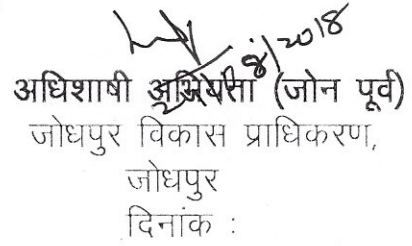 अधिशाषी अभियंता (जोन पूर्व)
जोधपुर विकास प्राधिकरण,
जोधपुर
दिनांक :